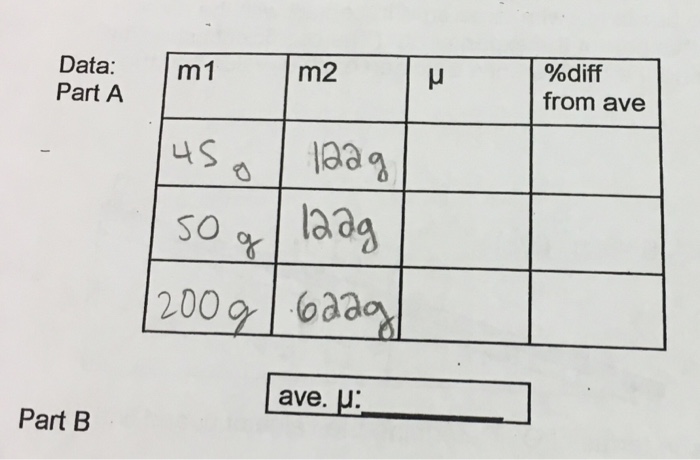 Data:
Part A
m1 m2 μ %diff
from ave
45 g 122g
50 g 122g
200g 622g
ave. μ:
Part B